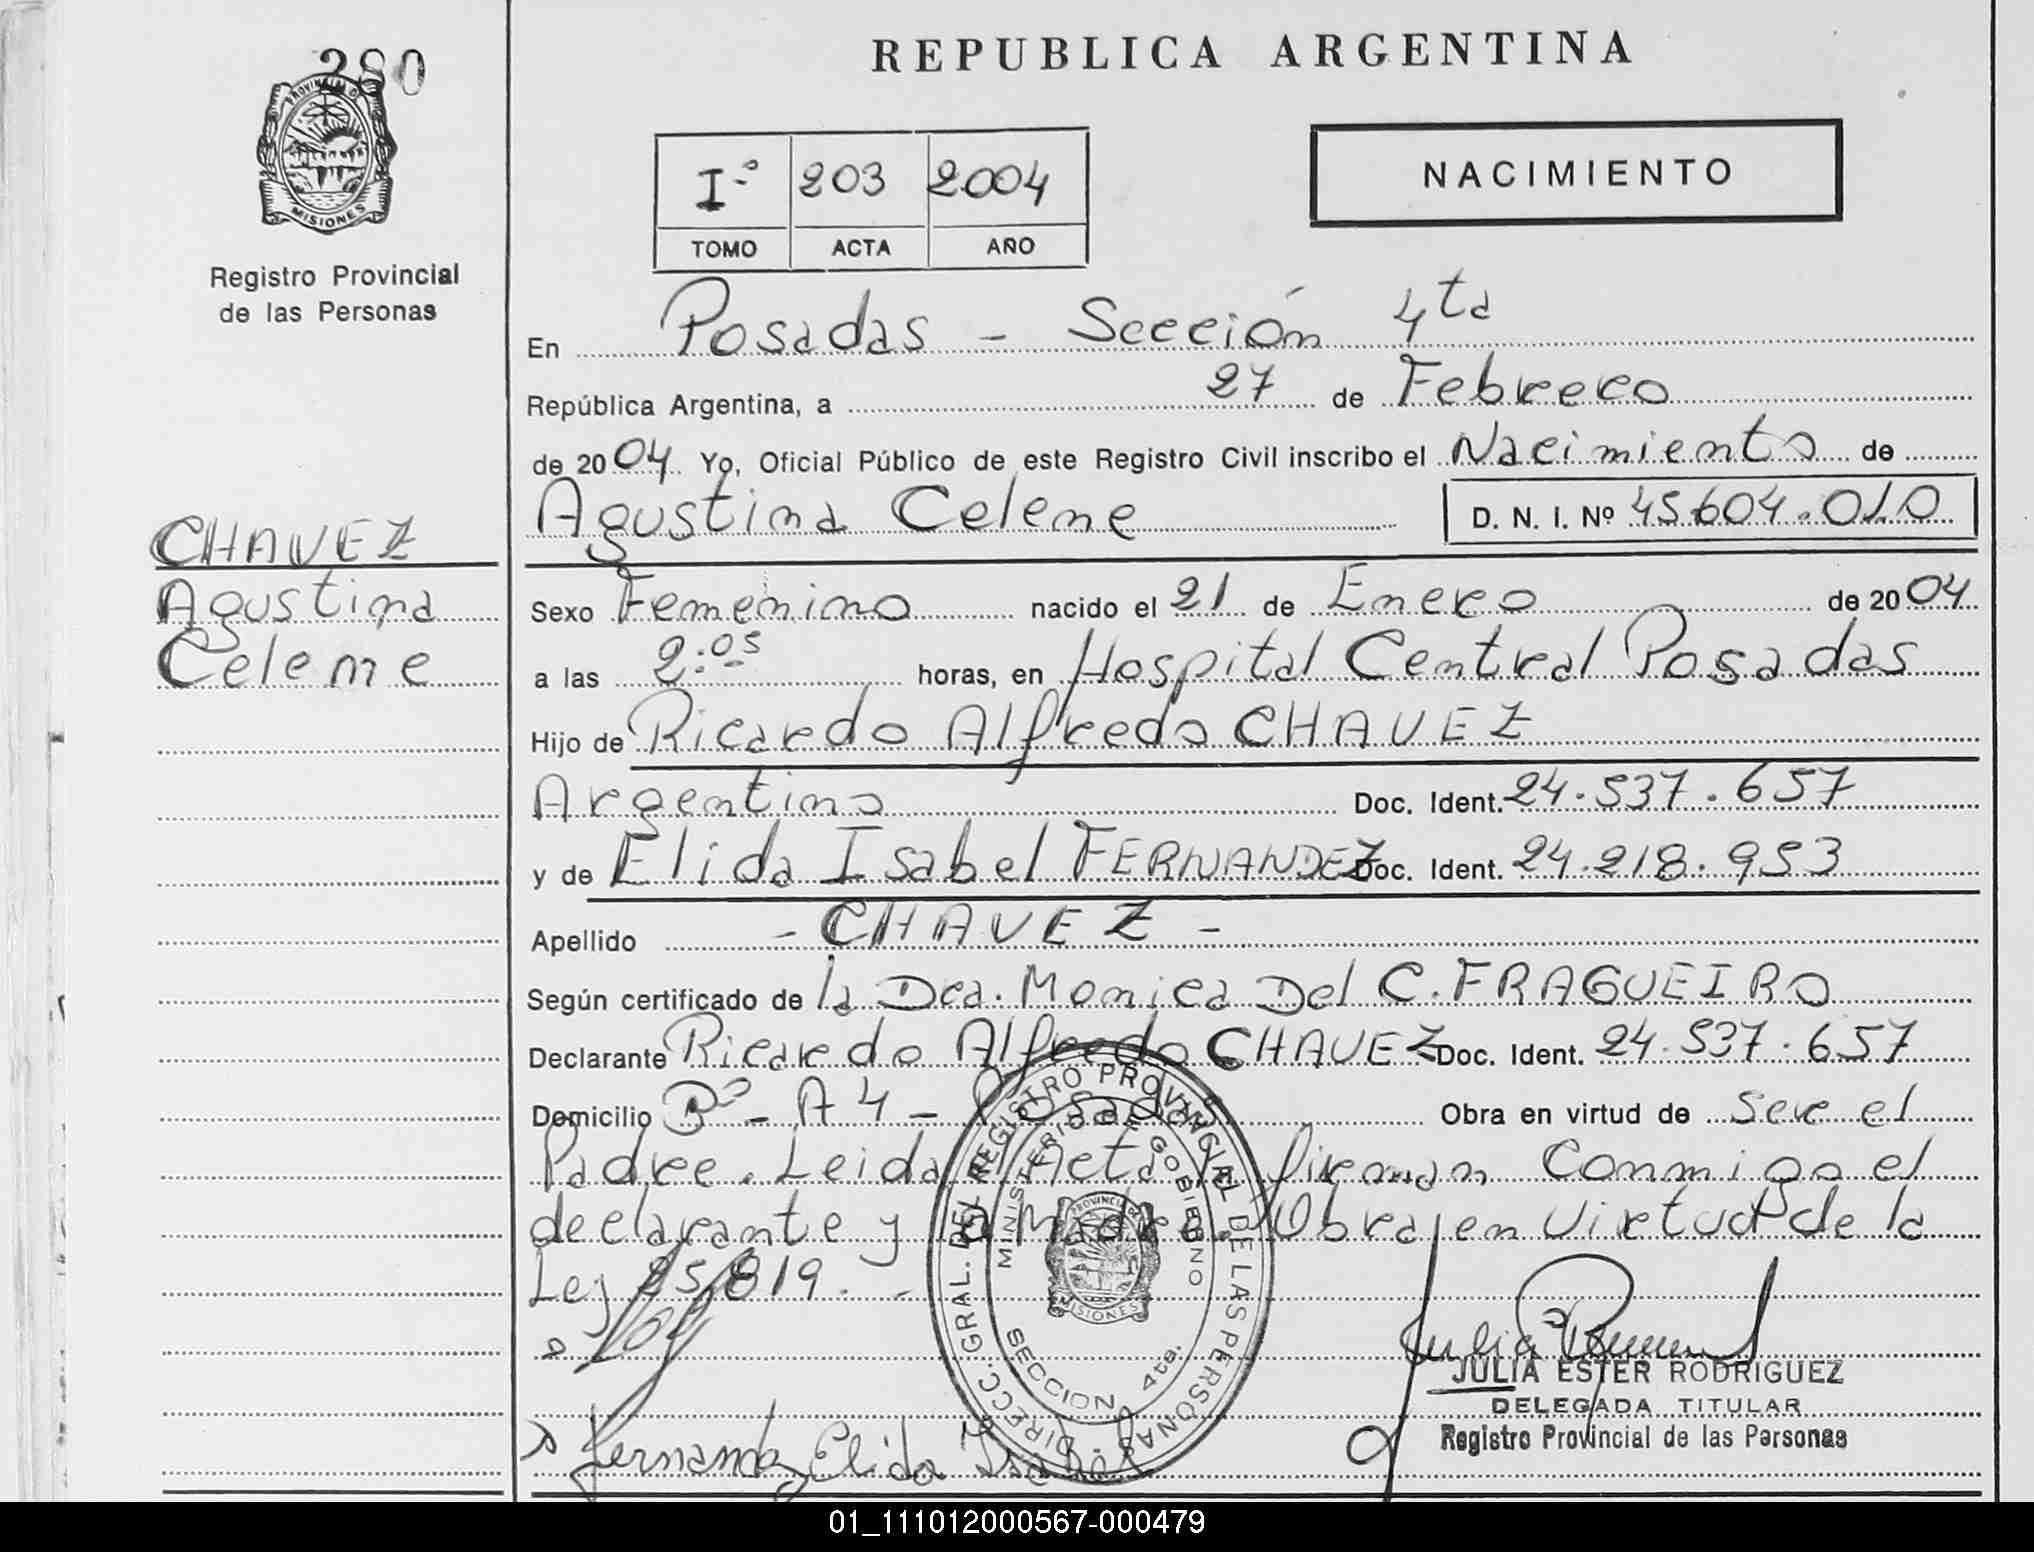 280
PROVINCIA DE
MISIONES
Registro Provincial
de las Personas
REPUBLICA ARGENTINA
Iº 203 2004
TOMO ACTA AÑO
NACIMIENTO
En Posadas - Sección 4ta
República Argentina, a 27 de Febrero
de 2004 Yo, Oficial Público de este Registro Civil inscribo el Nacimiento de
Agustina Celene D. N. I. Nº 45.604.010
CHAVEZ
Agustina
Celene
Sexo Femenino nacido el 21 de Enero de 2004
a las 2:05 horas, en Hospital Central Posadas
Hijo de Ricardo Alfredo CHAVEZ
Argentino Doc. Ident. 24.537.657
y de Elida Isabel FERNANDEZ Doc. Ident. 24.218.953
Apellido - CHAVEZ -
Según certificado de la Dra. Monica Del C. FRAGUEIRO
Declarante Ricardo Alfredo CHAVEZ Doc. Ident. 24.537.657
Domicilio Bº - A4 - Posadas Obra en virtud de Ser el
Padre. Leida Acta firman Conmigo el
declarante y la Madre. Obra en Virtud de la
Ley 25.819. -
DIRECC. GRAL. DEL REGISTRO PROVINCIAL DE LAS PERSONAS
MINISTERIO DE GOBIERNO
PROVINCIA DE
MISIONES
SECCION 4ta.
JULIA ESTER RODRIGUEZ
DELEGADA TITULAR
Registro Provincial de las Personas
Fernandez Elida Isabel
01_111012000567-000479